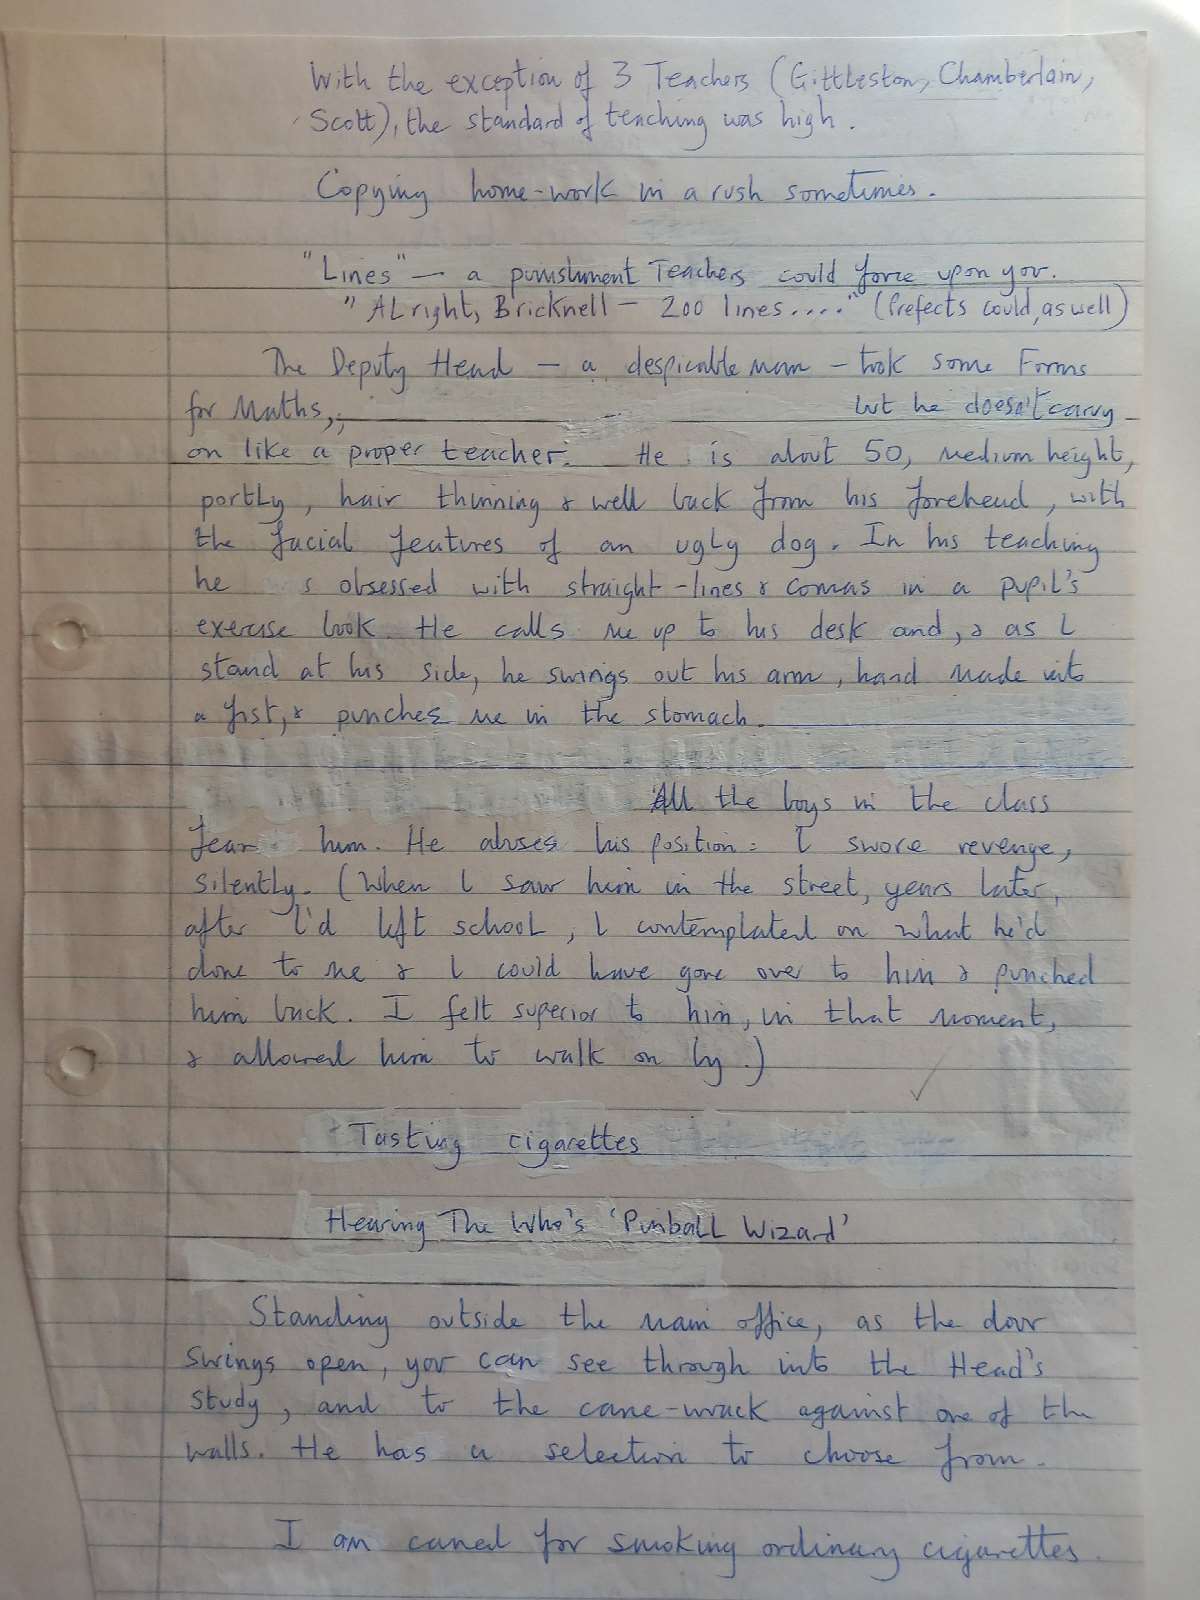 With the exception of 3 Teachers (Gittleston, Chamberlain,
Scott), the standard of teaching was high.
Copying home-work in a rush sometimes.
"Lines" — a punishment Teachers could force upon you.
"ALright, Bricknell — 200 lines...." (Prefects could, as well)
The Deputy Head — a despicable man — took some Forms
for Maths, but he doesn't carry
on like a proper teacher. He is about 50, medium height,
portly, hair thinning & well back from his forehead, with
the facial features of an ugly dog. In his teaching
he s obsessed with straight-lines & comas in a pupil's
exercise book. He calls me up to his desk and, & as I
stand at his side, he swings out his arm, hand made into
a fist, & punches me in the stomach.
All the boys in the class
fear him. He abuses his position: I swore revenge,
silently. (When I saw him in the street, years later,
after I'd left school, I contemplated on what he'd
done to me & I could have gone over to him & punched
him back. I felt superior to him, in that moment,
& allowed him to walk on by.)
Tasting cigarettes
Hearing The Who's 'Pinball Wizard'
Standing outside the main office, as the door
swings open, you can see through into the Head's
study, and to the cane-wrack against one of the
walls. He has a selection to choose from.
I am caned for smoking ordinary cigarettes.